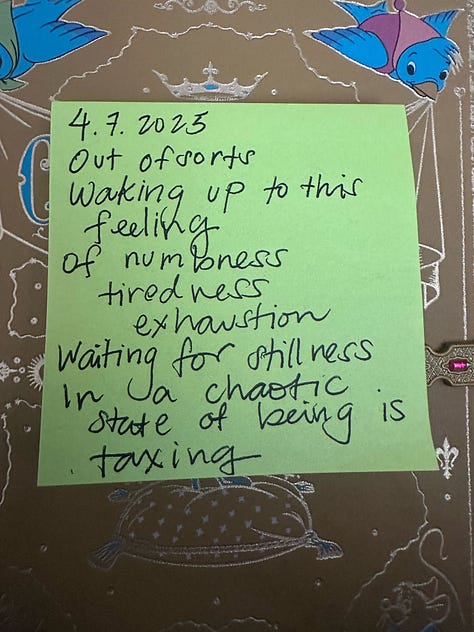 4.7.2025
Out of sorts
Waking up to this
feeling
of numbness
tiredness
exhaustion
Waiting for stillness
In a chaotic
state of being is
taxing